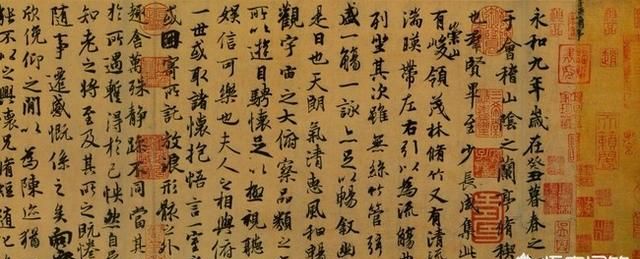 永和九年歲在癸丑暮春之
于會稽山陰之蘭亭脩禊
也羣賢畢至少長咸集此
有崇山峻領茂林脩竹又有清流
湍暎帶左右引以為流觴曲
列坐其次雖無絲竹管弦
盛一觴一詠亦足以暢敘幽
是日也天朗氣清惠風和暢
觀宇宙之大俯察品類之
所以遊目騁懷足以極視聽
娛信可樂也夫人之相與俯
一世或取諸懷抱悟言一室
或因寄所託放浪形骸之外
趣舍萬殊靜躁不同當其
於所遇暫得於己怏然自
知老之將至及其所之既惓
隨事遷感慨係之矣向之
欣俛仰之閒以為陳迹猶
能不以之興懷況脩短隨化
悟空问答